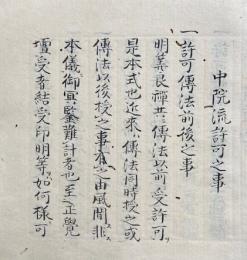 中院流許可之事
一許可傳法前後之事
明算良禪共傳法以前受許可
是本式也近來傳法同時授之或
傳法以後授之事有之由風聞非
本儀御冥鑒難計者也至正覺
壇受者結受印明等如何樣可